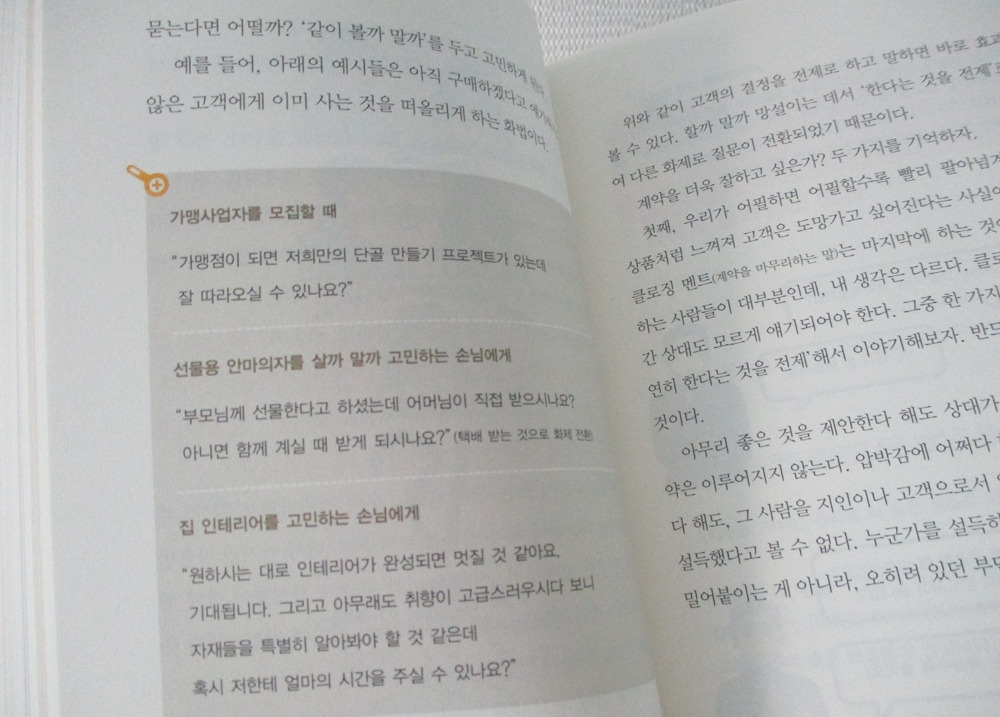 묻는다면 어떨까? ‘같이 볼까 말까’를 두고 고민하게 된다.
예를 들어, 아래의 예시들은 아직 구매하겠다고 얘기하지
않은 고객에게 이미 사는 것을 떠올리게 하는 화법이다.
가맹사업자를 모집할 때
“가맹점이 되면 저희만의 단골 만들기 프로젝트가 있는데
잘 따라오실 수 있나요?”
선물용 안마의자를 살까 말까 고민하는 손님에게
“부모님께 선물한다고 하셨는데 어머님이 직접 받으시나요?
아니면 함께 계실 때 받게 되시나요?” (택배 받는 것으로 화제 전환)
집 인테리어를 고민하는 손님에게
“원하시는 대로 인테리어가 완성되면 멋질 것 같아요.
기대됩니다. 그리고 아무래도 취향이 고급스러우시다 보니
자재들을 특별히 알아봐야 할 것 같은데
혹시 저한테 얼마의 시간을 주실 수 있나요?”
위와 같이 고객의 결정을 전제로 하고 말하면 바로 효과
볼 수 있다. 할까 말까 망설이는 데서 ‘한다는 것을 전제’로
여 다른 화제로 질문이 전환되었기 때문이다.
계약을 더욱 잘하고 싶은가? 두 가지를 기억하자.
첫째, 우리가 어필하면 어필할수록 빨리 팔아넘겨
상품처럼 느껴져 고객은 도망가고 싶어진다는 사실이
클로징 멘트(계약을 마무리하는 말)는 마지막에 하는 것이
하는 사람들이 대부분인데, 내 생각은 다르다. 클로
간 상대도 모르게 얘기되어야 한다. 그중 한 가지
연히 한다는 것을 전제’해서 이야기해보자. 반드
것이다.
아무리 좋은 것을 제안한다 해도 상대가
약은 이루어지지 않는다. 압박감에 어쩌다
다 해도, 그 사람을 지인이나 고객으로서
설득했다고 볼 수 없다. 누군가를 설득하
밀어붙이는 게 아니라, 오히려 있던 부담